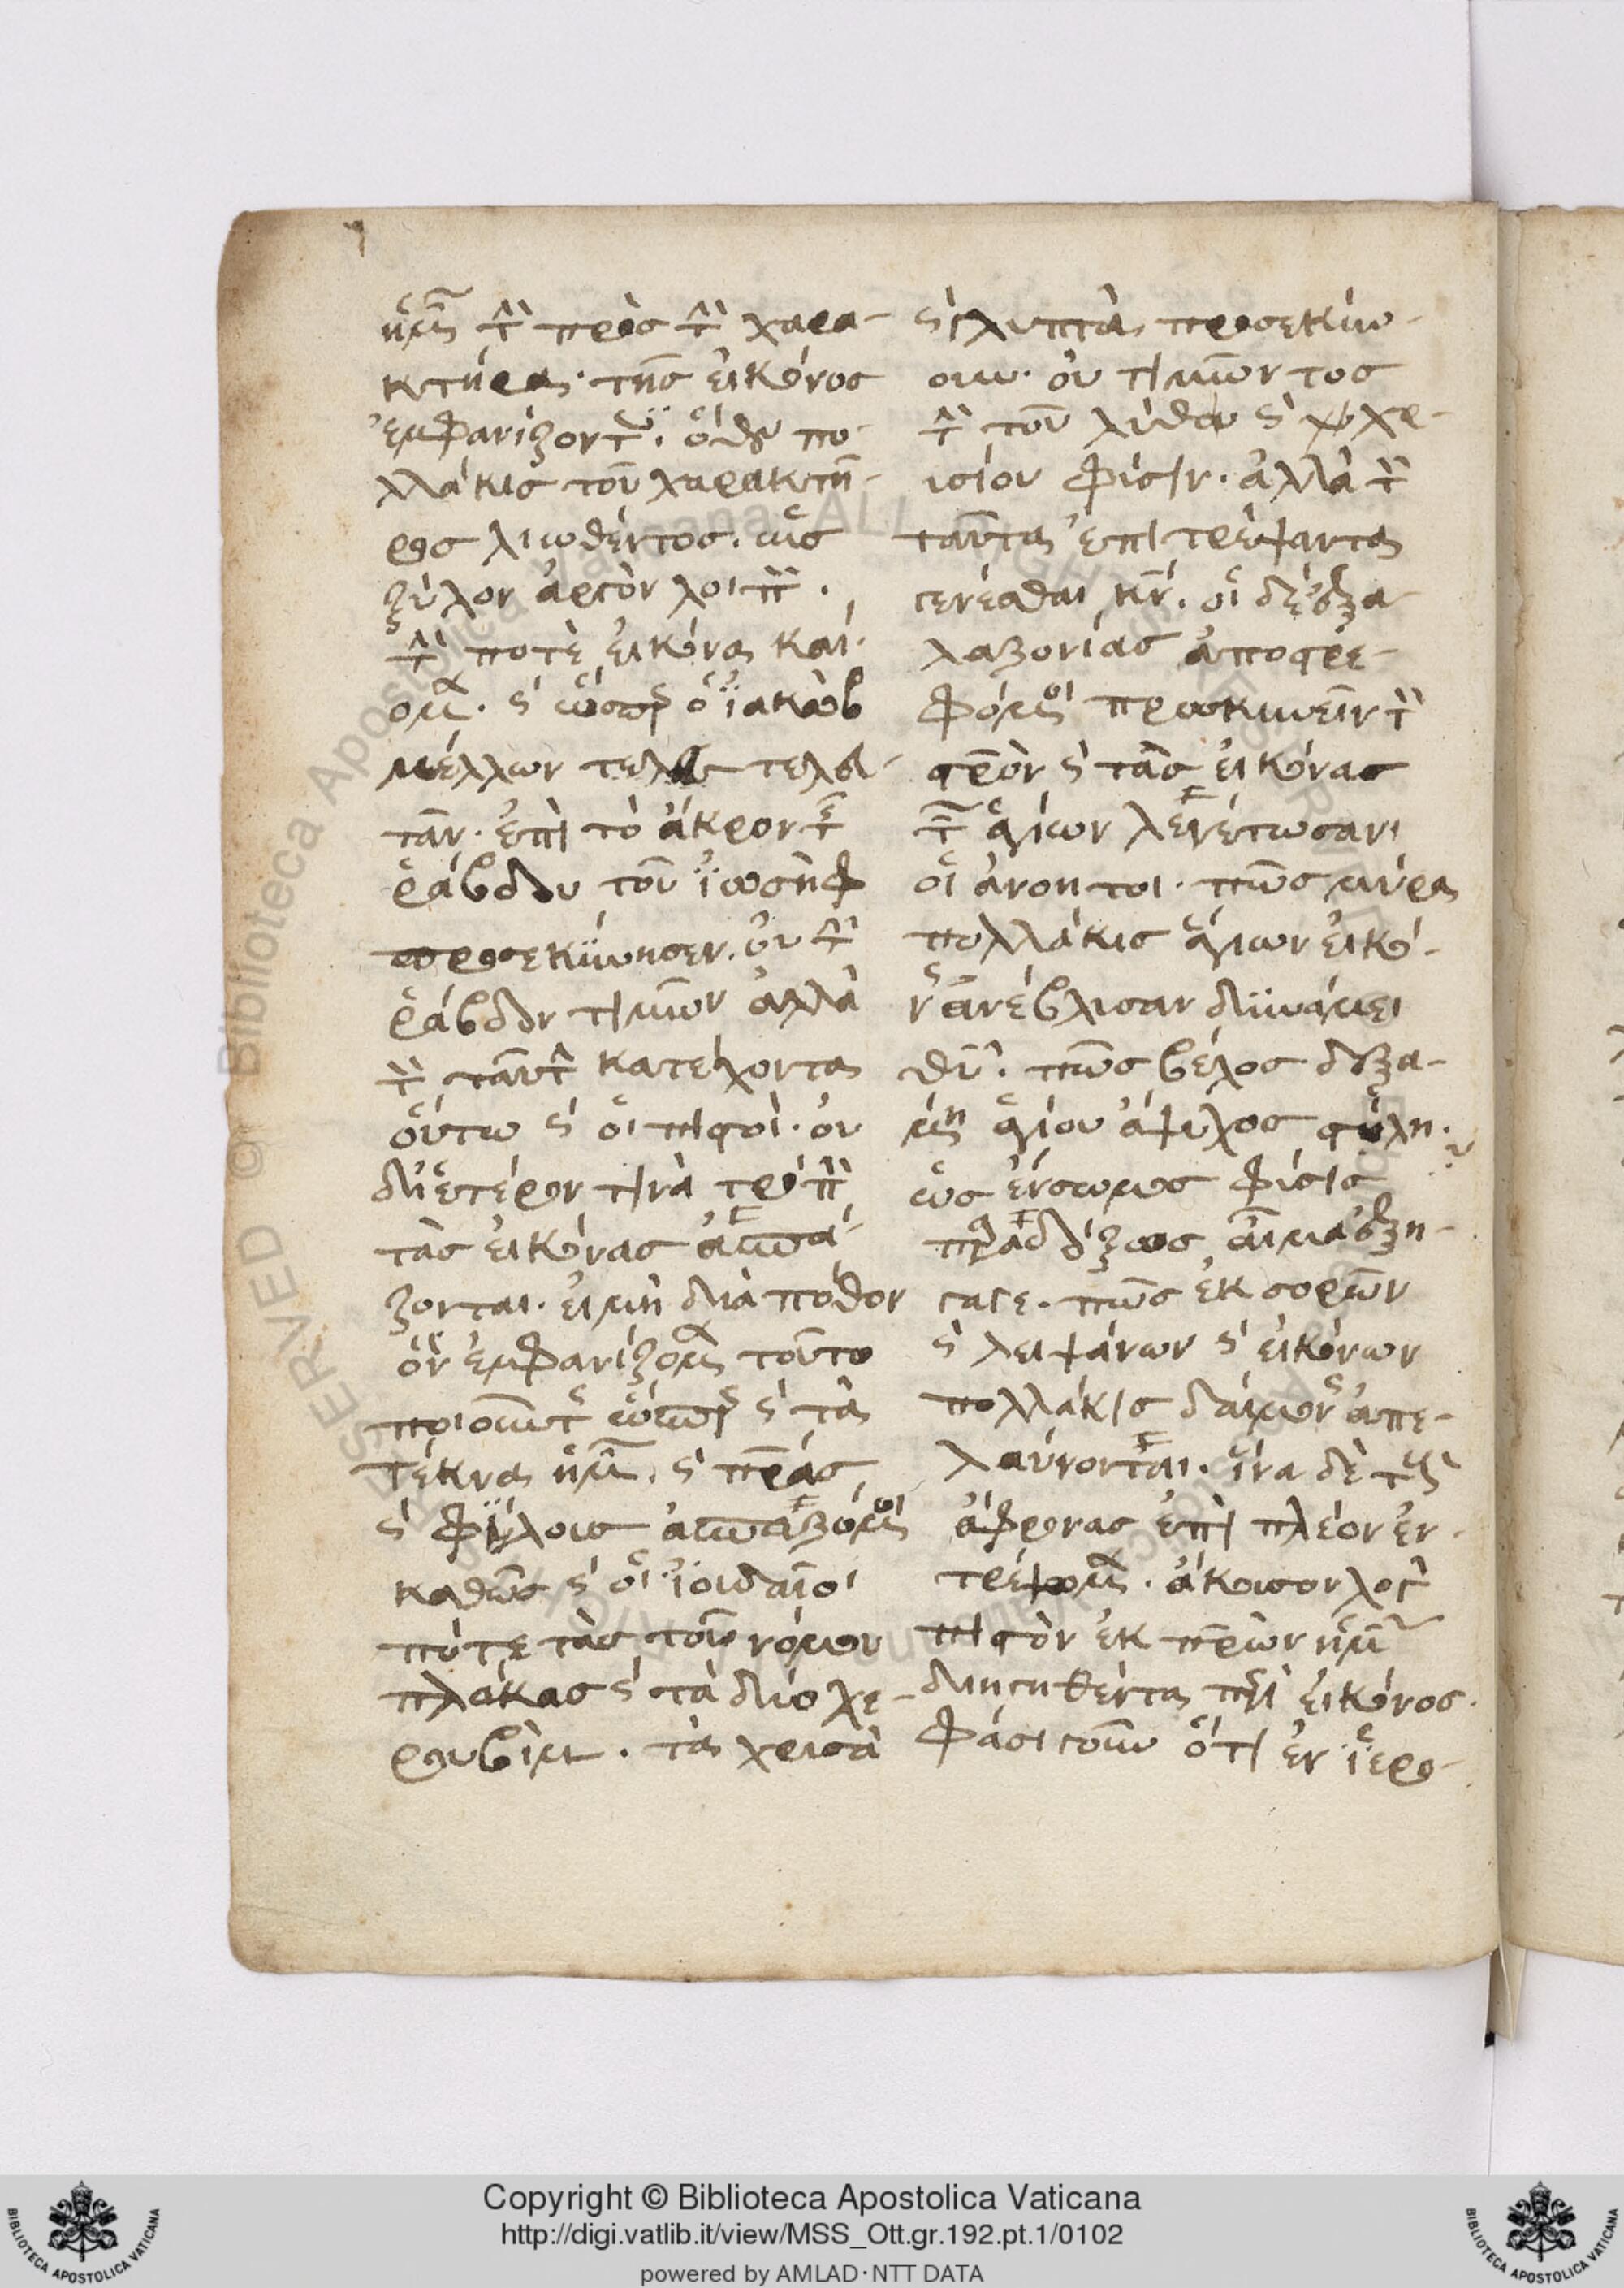 ἡμῖν τὸν πρὸς τὸν χαρα-
κτήρα. τῆς εἰκόνος
ἐμφανίζοντες. ὅθεν πο-
λλάκις τοῦ χαρακτῆ-
ρος λιωθέντος. ὡς
ξύλον ἀργὸν λοιπὸν.
τὴν ποτὲ εἰκόνα καί-
ομεν. καὶ ὥσπερ ὁ ἰακὼβ
μέλλων τελευτᾶν τελευ-
τᾶν. ἐπὶ τὸ ἄκρον τῆς
ῥάβδου τοῦ ἰωσὴφ
προσεκύνησεν. οὐ τὴν
ῥάβδον τιμῶν ἀλλὰ
τὸν ταύτην κατέχοντα
οὕτω καὶ οἱ πιστοὶ. οὐ
δι' ἕτερον τινὰ τρόπον
τὰς εἰκόνας ἀσπά-
ζονται. εἰ μὴ διὰ πόθον
ὃν ἐμφανίζομεν τοῦτο
ποιοῦντες ὥσπερ καὶ τὰ
τέκνα ἡμῶν. καὶ πατέρας
καὶ φίλοις ἀσπαζόμενοι
καθὼς καὶ οἱ ἰουδαῖοι
πότε τὰς τοῦ νόμου
πλάκας καὶ τὰ δύο χε-
ρουβὶμ. τὰ χρυσὰ
καὶ γλυπτὰ προσεκύνουν.
οὐ τιμῶντος
τὴν τοῦ λίθου καὶ χρ-
υσίου φύσιν. ἀλλὰ τὸν
ταῦτα ἐπιτρέψαντα
γενέσθαι κύριον. οἱ δὲ ἐξ ἀ-
λαζονίας ἀποστρε-
φόμενοι προσκυνεῖν τὸν
σταυρὸν καὶ τὰς εἰκόνας
τῶν ἁγίων λεγέτωσαν
οἱ ἀνόητοι. πῶς μύρα
πολλάκις ἁγίων εἰκό-
νες ἀνέβλισαν δυνάμει
θεοῦ. πῶς βέλος δεξα-
μένη ἁγίου ἄψυχος στύλη.
ὡς ἔνσωμος φύσις
παραδόξως αἷμα ἐξη-
γαγε. πῶς ἐκ σορῶν
καὶ λειψάνων καὶ εἰκόνων
πολλάκις δαίμονες ἀπε-
λαύνονται. ἵνα δὲ τοὺς
ἄφρονας ἐπὶ πλέον ἐν-
τρέψομεν. ἄκουσον λόγον
πιστὸν ἐκ πατέρων ἡμῖν
διηγηθέντα περὶ εἰκόνος.
φάσι γοῦν ὅτι ἐν ἱερο-
Copyright © Biblioteca Apostolica Vaticana
http://digi.vatlib.it/view/MSS_Ott.gr.192.pt.1/0102
powered by AMLAD·NTT DATA
BIBLIOTECA APOSTOLICA VATICANA
BIBLIOTECA APOSTOLICA VATICANA